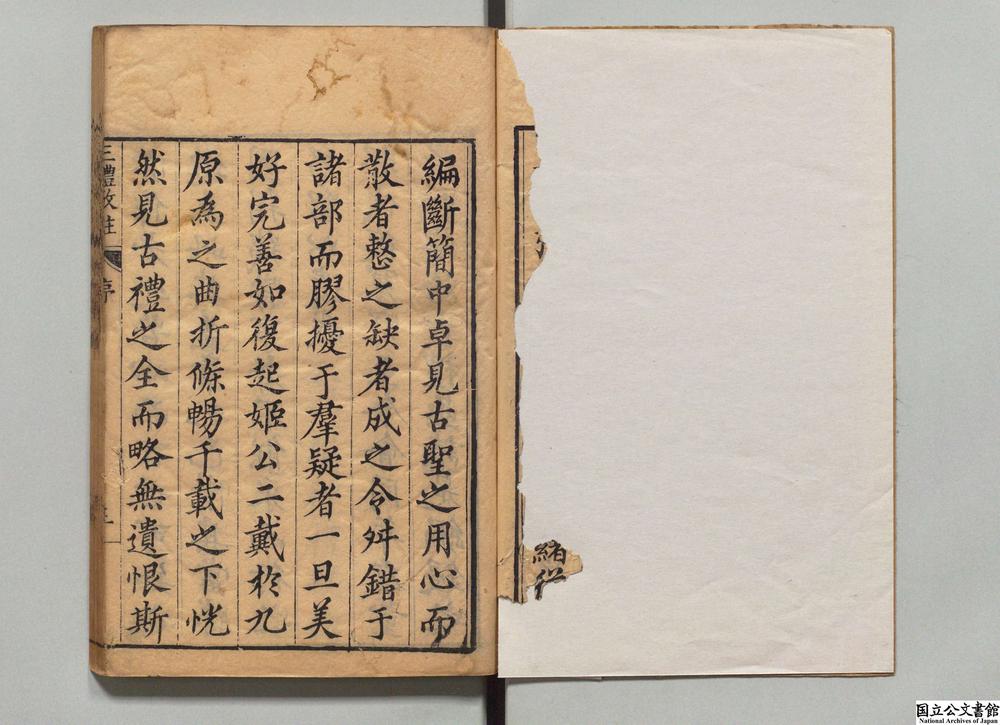 緒
編斷簡中卓見古聖之用心而
散者整之缺者成之令舛錯于
諸部而膠擾于羣疑者一旦美
好完善如復起姬公二戴於九
原爲之曲折條暢千載之下恍
然見古禮之全而略無遺恨斯
三禮攷註
序
国立公文書館
National Archives of Japan